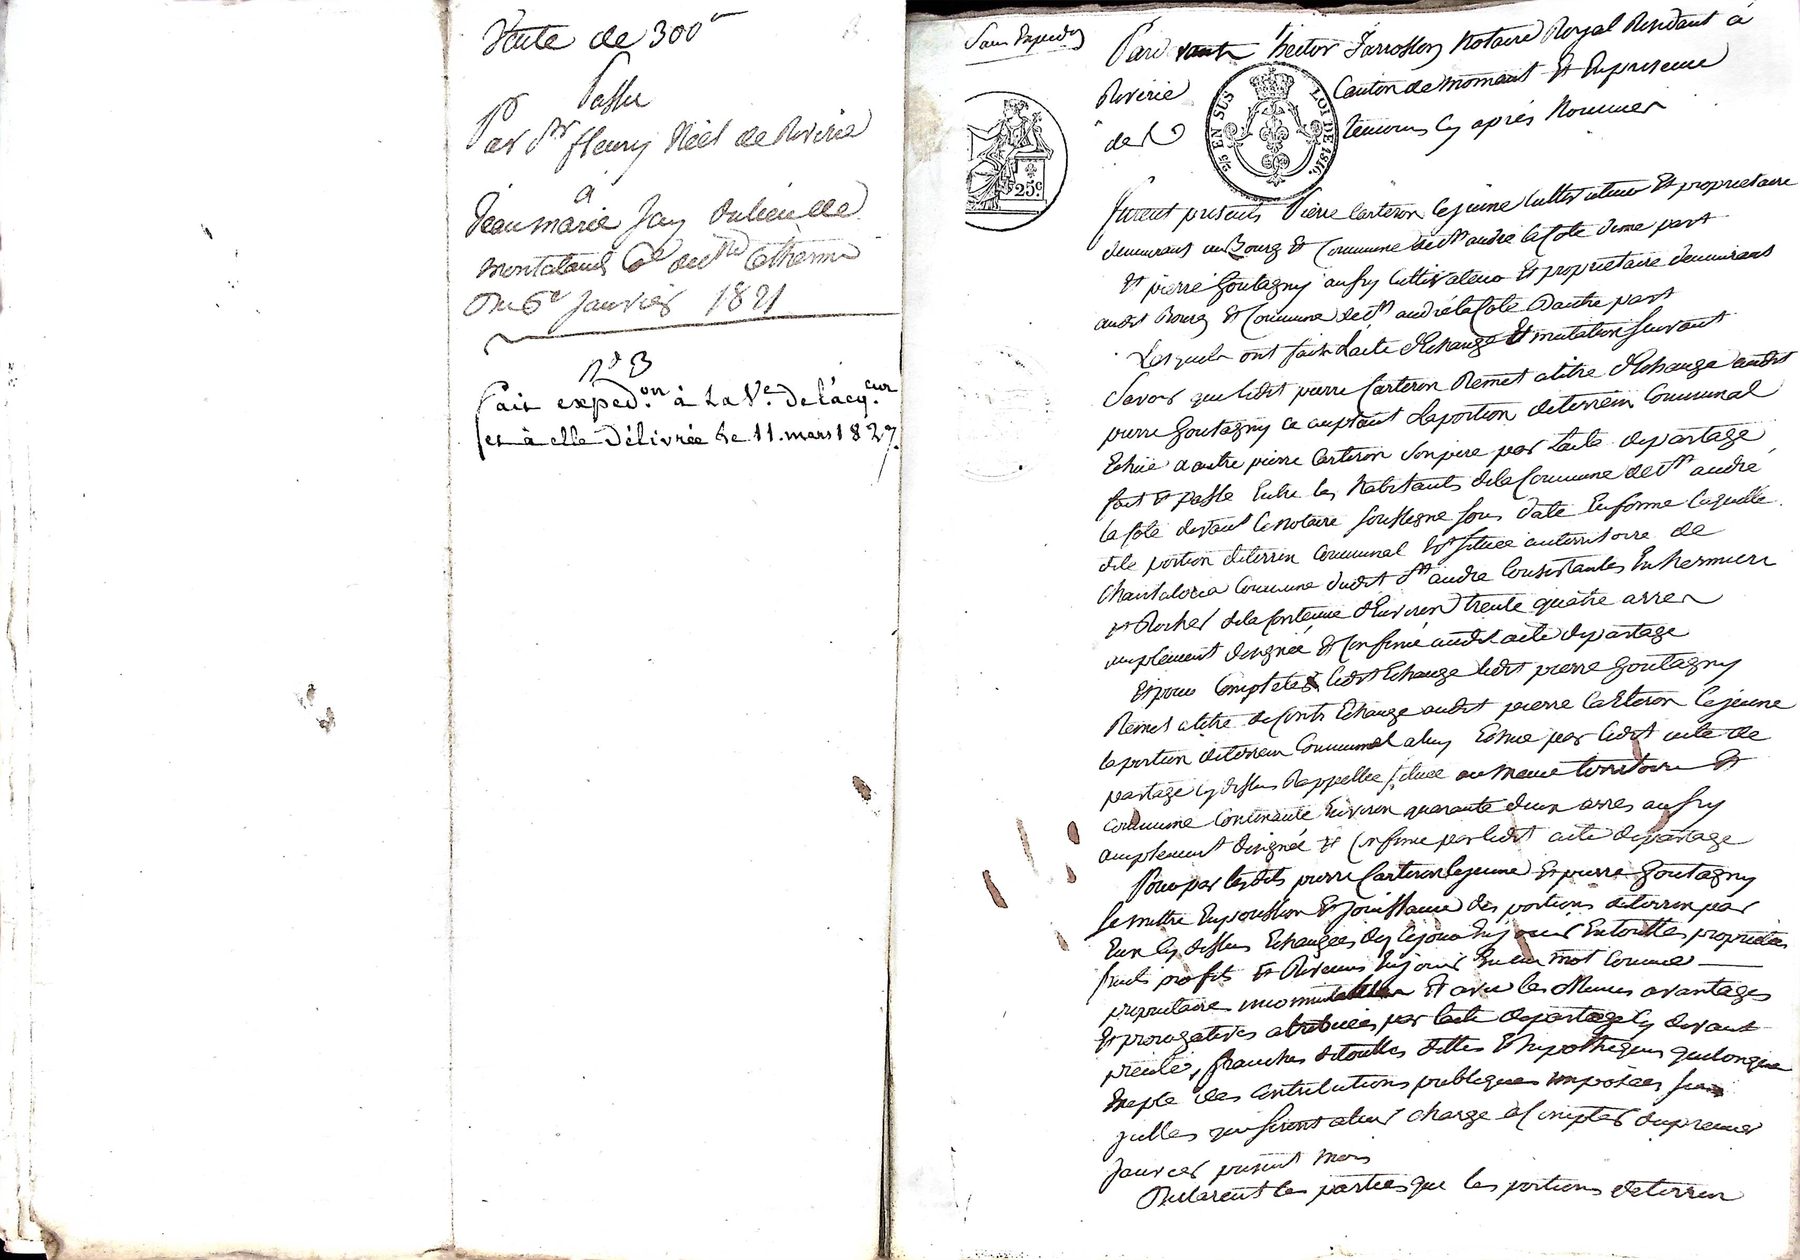 Vente de 300 fr
Passée
Par Sr fleury Néel de Riverie
a
Jean marie Jay dulieu de
montaland Cne de Ste Catherine
Du 6e Janvier 1821
No 3
fait expedon. à La Ve. De l'acqeur.
et à elle Délivrée le 11. mars 1827.
Sans Expedon
Pard vant hector farrosson Notaire Royal Residant à
Riverie Canton de mornant Et En presence
de témoins Cy après Nommer
2/5 EN SUS LOI DE 1816.
25c.
furent presents Pierre Carteron Lejeune Cultivateur Et proprietaire
demeurant au Bourg Et Commune de St andré la Cote d'une part
Et pierre Goutagny aussy Cultivateur Et proprietaire demeurant
audit Bourg Et Commune de St andré la Cote D'autre part
Lesquels ont fait L'acte d'Echange Et mutation suivant
Savoir que ledit pierre Carteron Remet a titre d'Echange audit
pierre Goutagny ce acceptant La portion de terrein Communal
Echue a autre pierre Carteron Son pere par L'acte de partage
fait Et Passé Entre les habitants de la Commune de St andré
la Cote devant le notaire Soussigné Sous date En forme laquelle
dite portion de terrein Communal Est Située au territoire de
Commune dudit St andré Consistantes En hermieu
Et Rocher de la Contenue d'Environ trente quatre arres
amplement designée Et Confinée audit acte de partage
Et pour Completer ledit Echange ledit pierre Goutagny
Remet a titre de Contr Echange audit pierre Carteron Lejeune
la portion de terrein Communal a luy Echue par ledit acte de
partage cy dessus Rappellee située au meme territoire Et
commune Contenante Environ quarante deux arres aussy
amplement designée Et Confinée par ledit acte de partage
Pour par lesdits pierre Carteron lejeune Et pierre Goutagny
Se mettre En possession Et Jouissance des portions de terrein par
Eux Cy dessus Echangées des Cejour En jouir En touttes proprietés
fruits profits Et Revenus En jouir En un mot Comme
proprietaires incommutables Et avec les Memes avantages
Et prerogatives attribuées par l'acte de partage Cy devant
précité, franches de touttes dettes Et hypotheques quelconque
Exepté des Contributions publiques imposées sur
icelles qui Seront a leur charge a Compter du premier
Janvier present mois
Declarent les parties que les portions de terrein